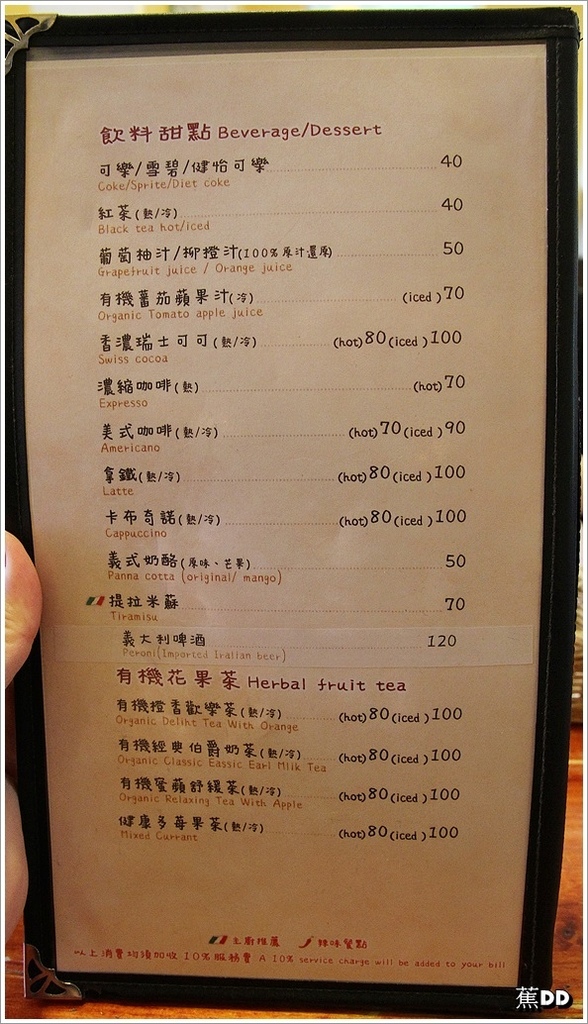 飲料甜點 Beverage/Dessert
可樂/雪碧/健怡可樂 40
Coke/Sprite/Diet coke
紅茶(熱/冷) 40
Black tea hot/iced
葡萄柚汁/柳橙汁(100%原汁還原) 50
Grapefruit juice / Orange juice
有機蕃茄蘋果汁(冷) (iced )70
Organic Tomato apple juice
香濃瑞士可可(熱/冷) (hot)80(iced )100
Swiss cocoa
濃縮咖啡(熱) (hot)70
Expresso
美式咖啡(熱/冷) (hot)70(iced )90
Americano
拿鐵(熱/冷) (hot)80(iced )100
Latte
卡布奇諾(熱/冷) (hot)80(iced )100
Cappuccino
義式奶酪(原味、芒果) 50
Panna cotta (original/ mango)
提拉米蘇 70
Tiramisu
義大利啤酒 120
Peroni(Imported Iralian beer)
有機花果茶 Herbal fruit tea
有機橙香歡樂茶(熱/冷) (hot)80(iced )100
Organic Deliht Tea With Orange
有機經典伯爵奶茶(熱/冷) (hot)80(iced )100
Organic Classic Eassic Earl Mlik Tea
有機蜜蘋舒緩茶(熱/冷) (hot)80(iced )100
Organic Relaxing Tea With Apple
健康多莓果茶(熱/冷) (hot)80(iced )100
Mixed Currant
主廚推薦 辣味餐點
以上消費均須加收 10%服務費 A 10% service charge will be added to your bill
蕉DD